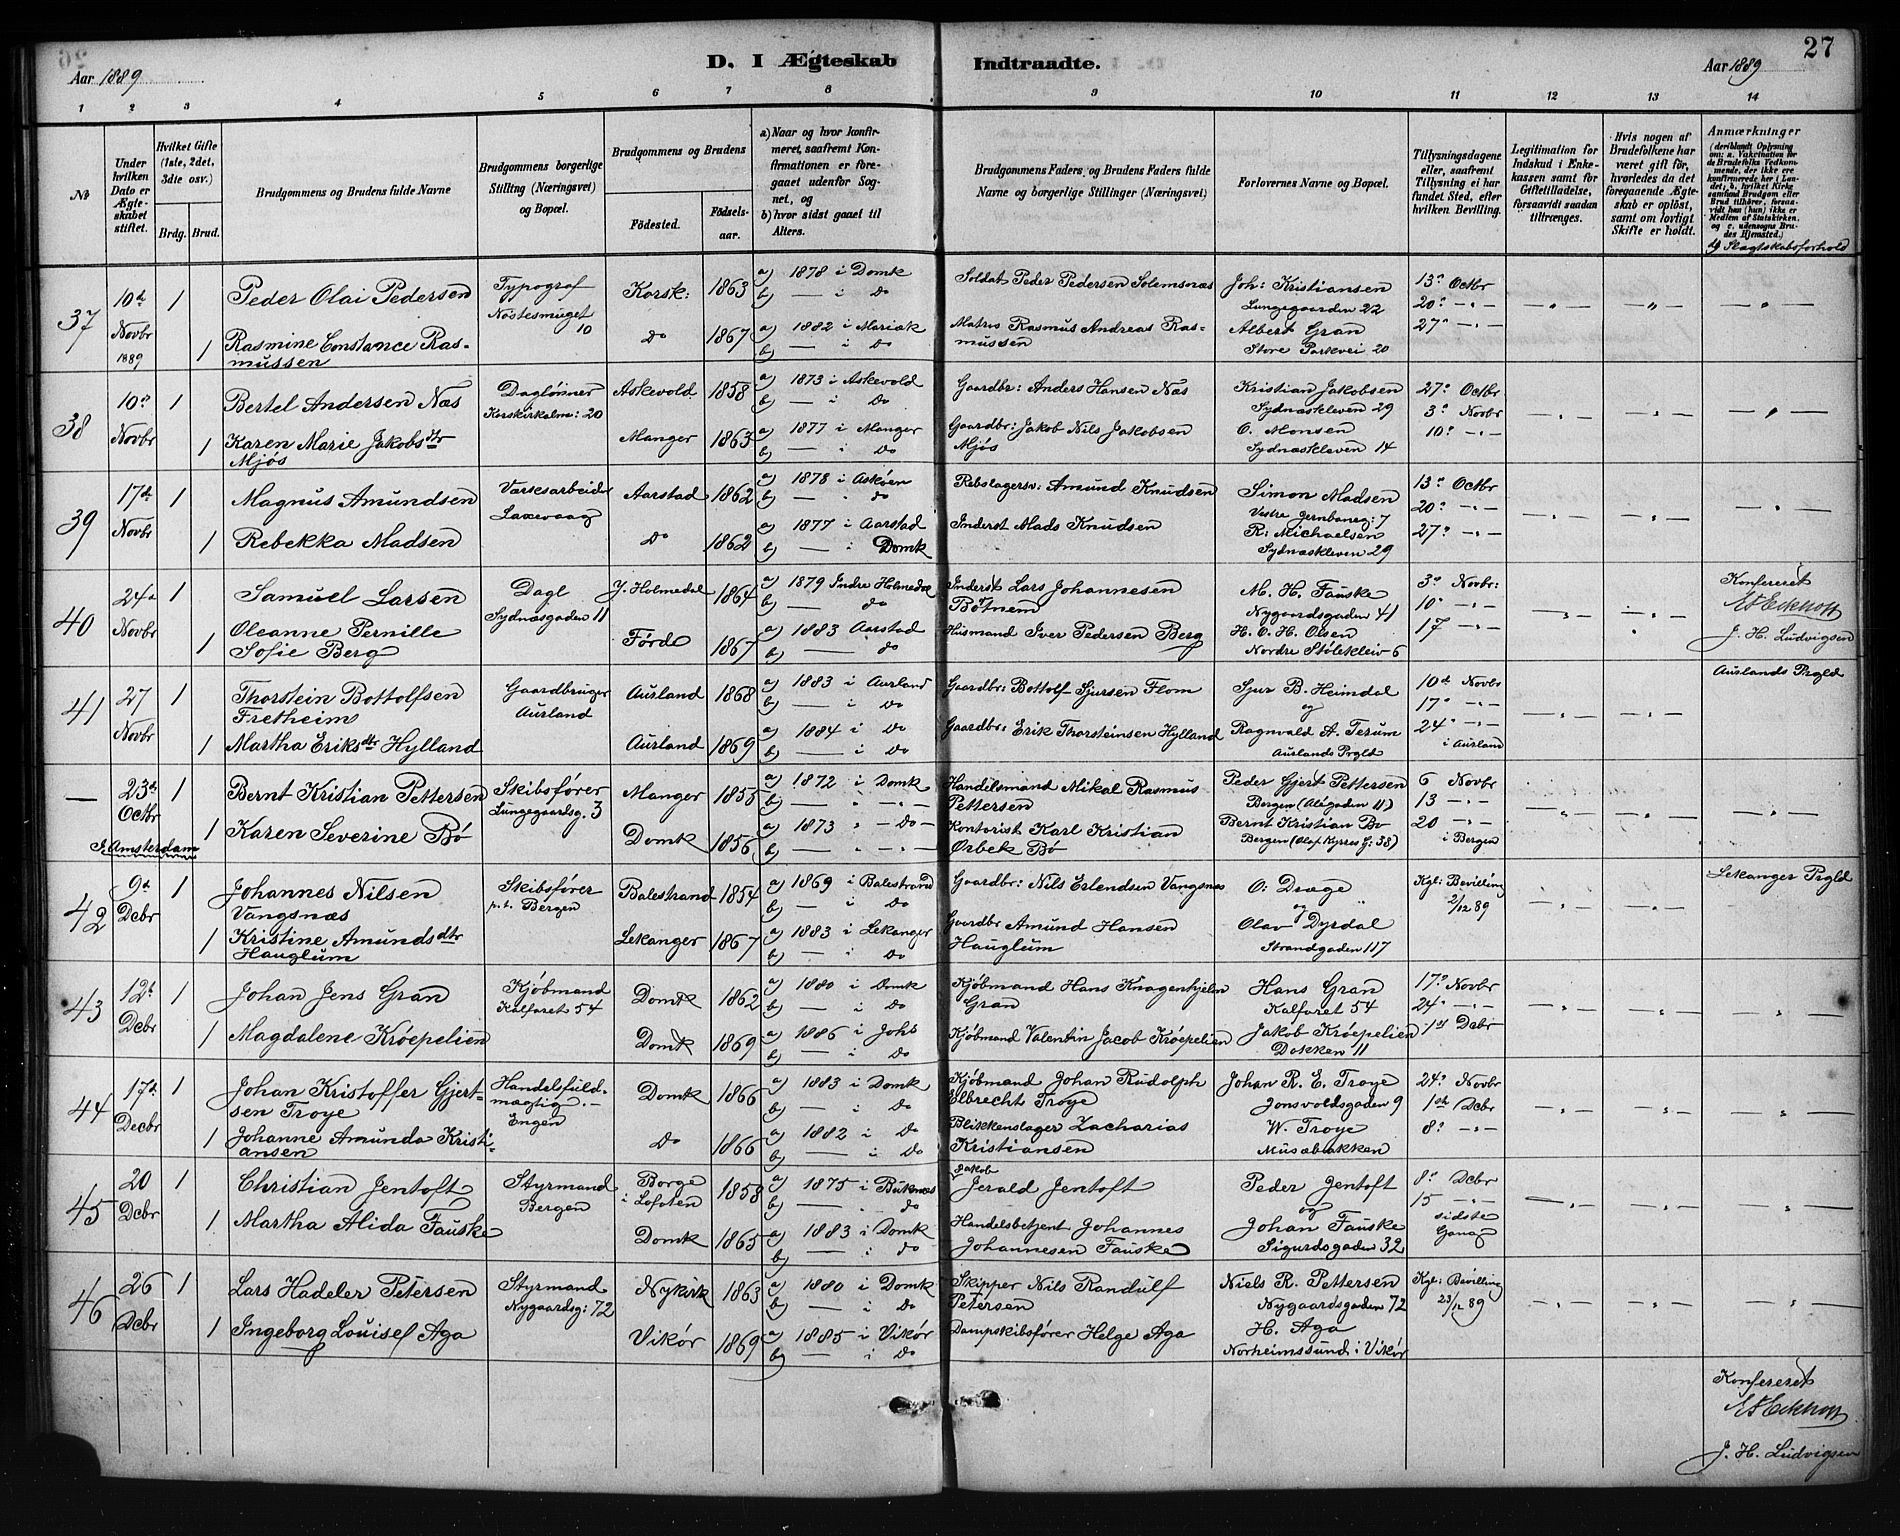 27
D. I Ægteskab Indtraadte.
Aar 1889
Aar 1889
1 2 3 4 5 6 7 8 9 10 11 12 13 14
№
Under hvilken Dato er Ægteskabet stiftet.
Hvilket Gifte (1ste, 2det, 3die osv.)
Brdg. Brud.
Brudgommens og Brudens fulde Navne
Brudgommens borgerlige Stilling (Næringsvei) og Bopæl.
Brudgommens og Brudens
Fødested. Fødselsaar.
a) Naar og hvor konfirmeret, saafremt Konfirmationen er foregaaet udenfor Sognet, og
b) hvor sidst gaaet til Alters.
Brudgommens Faders og Brudens Faders fulde Navne og borgerlige Stillinger (Næringsvei)
Forlovernes Navne og Bopæl.
Tillysningsdagene eller, saafremt Tillysning ei har fundet Sted, efter hvilken Bevilling.
Legitimation for Indskud i Enkekassen samt for Giftetilladelse, forsaavidt saadan tiltrænges.
Hvis nogen af Brudefolkene har været gift før, hvorledes da det foregaaende Ægteskab er opløst, samt om lovligt Skifte er holdt.
Anmærkninger (deriblandt Oplysning om: a. Vakcination for de Brudefolks Vedkommende, der ikke ere konfirmerede her i Landet; b. hvilket Kirkesamfund Brudgom eller Brud tilhører, forsaavidt han (hun) ikke er Medlem af Statskirken, og c. udensogns Brudes Hjemsted.)
d) Slagtskabsforhold
37 10de Novbr 1889 1 Peder Olai Pedersen Typograf Nøstesmuget 10 Korsk: 1863 a) 1878 i Domk b) — i Do Soldat Peder Pedersen Solemsnæs Joh: Kristiansen Lungegaarden 22 13de Octbr 20 — 27 —
1 Rasmine Constance Rasmussen Do 1867 a) 1882 i Mariæk b) — i Do Matros Rasmus Andreas Rasmussen Albert Gran Store Parkvei 20
38 10de Novbr 1 Bertel Andersen Næs Daglønner Korskirkealm: 20 Askevold 1858 a) 1873 i Askevold b) — i Do Gaardbr: Anders Hansen Næs Kristian Jakobsen Sydnæskleven 29 27 Octbr 3 Novbr 10 —
1 Karen Marie Jakobsdtr Mjøs Manger 1863 a) 1877 i Manger b) — i Do Gaardbr: Jakob Nils Jakobsen Mjøs O. Monsen Sydnæskleven 14
39 17de Novbr 1 Magnus Amundsen Værksarbeider Laxevaag Aarstad 1862 a) 1878 i Askøen b) — Do Rebslagersv: Amund Knudsen Simon Madsen Vestre Jernbaneg: 7 13 Octbr 20 — 27 —
1 Rebekka Madsen Do 1862 a) 1877 i Aarstad b) — i Domk Inderst Mads Knudsen R: Michaelsen Sydnæskleven 29
40 24de Novbr 1 Samuel Larsen Dagl Sydnæsgaden 11 Y. Holmedal 1864 a) 1879 Indre Holmedal b) — Do Inderst Lars Johannesen Botnem M. H. Fauske Nygaardsgaden 41 3 Novbr: 10 — 17 — Konfereret J. H. Ludvigsen
1 Oleanne Pernille Sofie Berg Førde 1867 a) 1883 Aarstad b) — Do Husmand Iver Pedersen Berg H. O. H. Olsen Nordre Stølekleiv 6
41 27 Novbr 1 Thorstein Bottolfsen Fretheim Gaardbruger Aurland Aurland 1868 a) 1883 i Aurland b) — i Do Gaardbr: Bottolf Sjursen Flom Sjur B. Heimdal og 10de Novbr 17 — 24 — i Aurland Aurlands Prgld
1 Martha Eriksdtr Hylland Aurland 1869 a) 1884 i Do b) — i Do Gaardbr: Erik Thorsteinsen Hylland Ragnvald A. Terum Aurlands Prgld
— 23de Octbr I Amsterdam 1 Bernt Kristian Pettersen Skibsfører Lungegaardsg. 3 Manger 1855 a) 1872 i Domk b) — Handelsmand Mikal Rasmus Pettersen Peder Gjert Pettersen Bergen (Alégaden 11) 6 Novbr 13 — 20 — i Bergen
1 Karen Severine Bø Domk 1856 a) 1873 — Do — b) — Kontorist Karl Kristian Ørbek Bø Bernt Kristian Bø Bergen (Olaf Kyrres G: 38)
42 9de Dcbr 1 Johannes Nilsen Vangsnæs Skibsfører p.t. Bergen Balestrand 1854 a) 1869 i Balestrand b) — i Do Gaardbr: Nils Erlendsen Vangsnæs O: Drage og Kgl: Bevilling 2/12 89 Lekanger Prgld
1 Kristine Amundsdtr Hauglum Lekanger 1867 a) 1883 i Lekanger b) — i Do Gaardbr Amund Hansen Hauglum Olav Dyrdal Strandgaden 117
43 12te Dcbr 1 Johan Jens Gran Kjøbmand Kalfaret 54 Domk 1862 a) 1880 i Domk b) — i Do Kjøbmand Hans Knagenhjelm Gran Hans Gran Kalfaret 54 17 Novbr 24 — 1ste Dcbr
1 Magdalene Krøepelien Domk 1869 a) 1886 i Johs b) — i Do Kjøbmand Valentin Jacob Krøepelien Jakob Krøepelien Dokken 11
44 17de Decbr 1 Johan Kristoffer Gjertsen Troye Handelsfuldmægtig. — Engen Domk 1866 a) 1883 i Domk b) — i Do Kjøbmand Johan Rudolph Elbrecht Troye Johan R. E. Troye Jonsvoldsgaden 9 24 Novbr 1ste Dcbr 8 —
1 Johanne Amunda Kristiansen Do 1866 a) 1882 i Do b) — i Do Blikkenslager Zacharias Kristiansen W. Troye Musæbakken
45 20 Dcbr 1 Christian Jentoft Styrmand Bergen Borge i Lofoten 1858 a) 1875 i Buknæs b) — Do Jakob Jerald Jentoft Peder Jentoft og 8 Dcbr 15 — sidste Gang
1 Martha Alida Fauske Domk 1865 a) 1883 i Domk b) — i Do Handelsbetjent Johannes Johannesen Fauske Johan Fauske Sigurdsgaden 32
46 26 Dcbr 1 Lars Hadeler Petersen Styrmand Nygaardsg: 72 Nykirk 1863 a) 1880 i Domk b) — i Do Skipper Nils Randulf Petersen Niels R. Pettersen Nygaardsgaden 72 Kgl: Bevilling 23/12 89
1 Ingeborg Louise Aga Vikør 1869 a) 1885 i Vikør b) — i Do Dampskibsfører Helge Aga H. Aga Norheimssund i Vikør
Konfereret
J. H. Ludvigsen